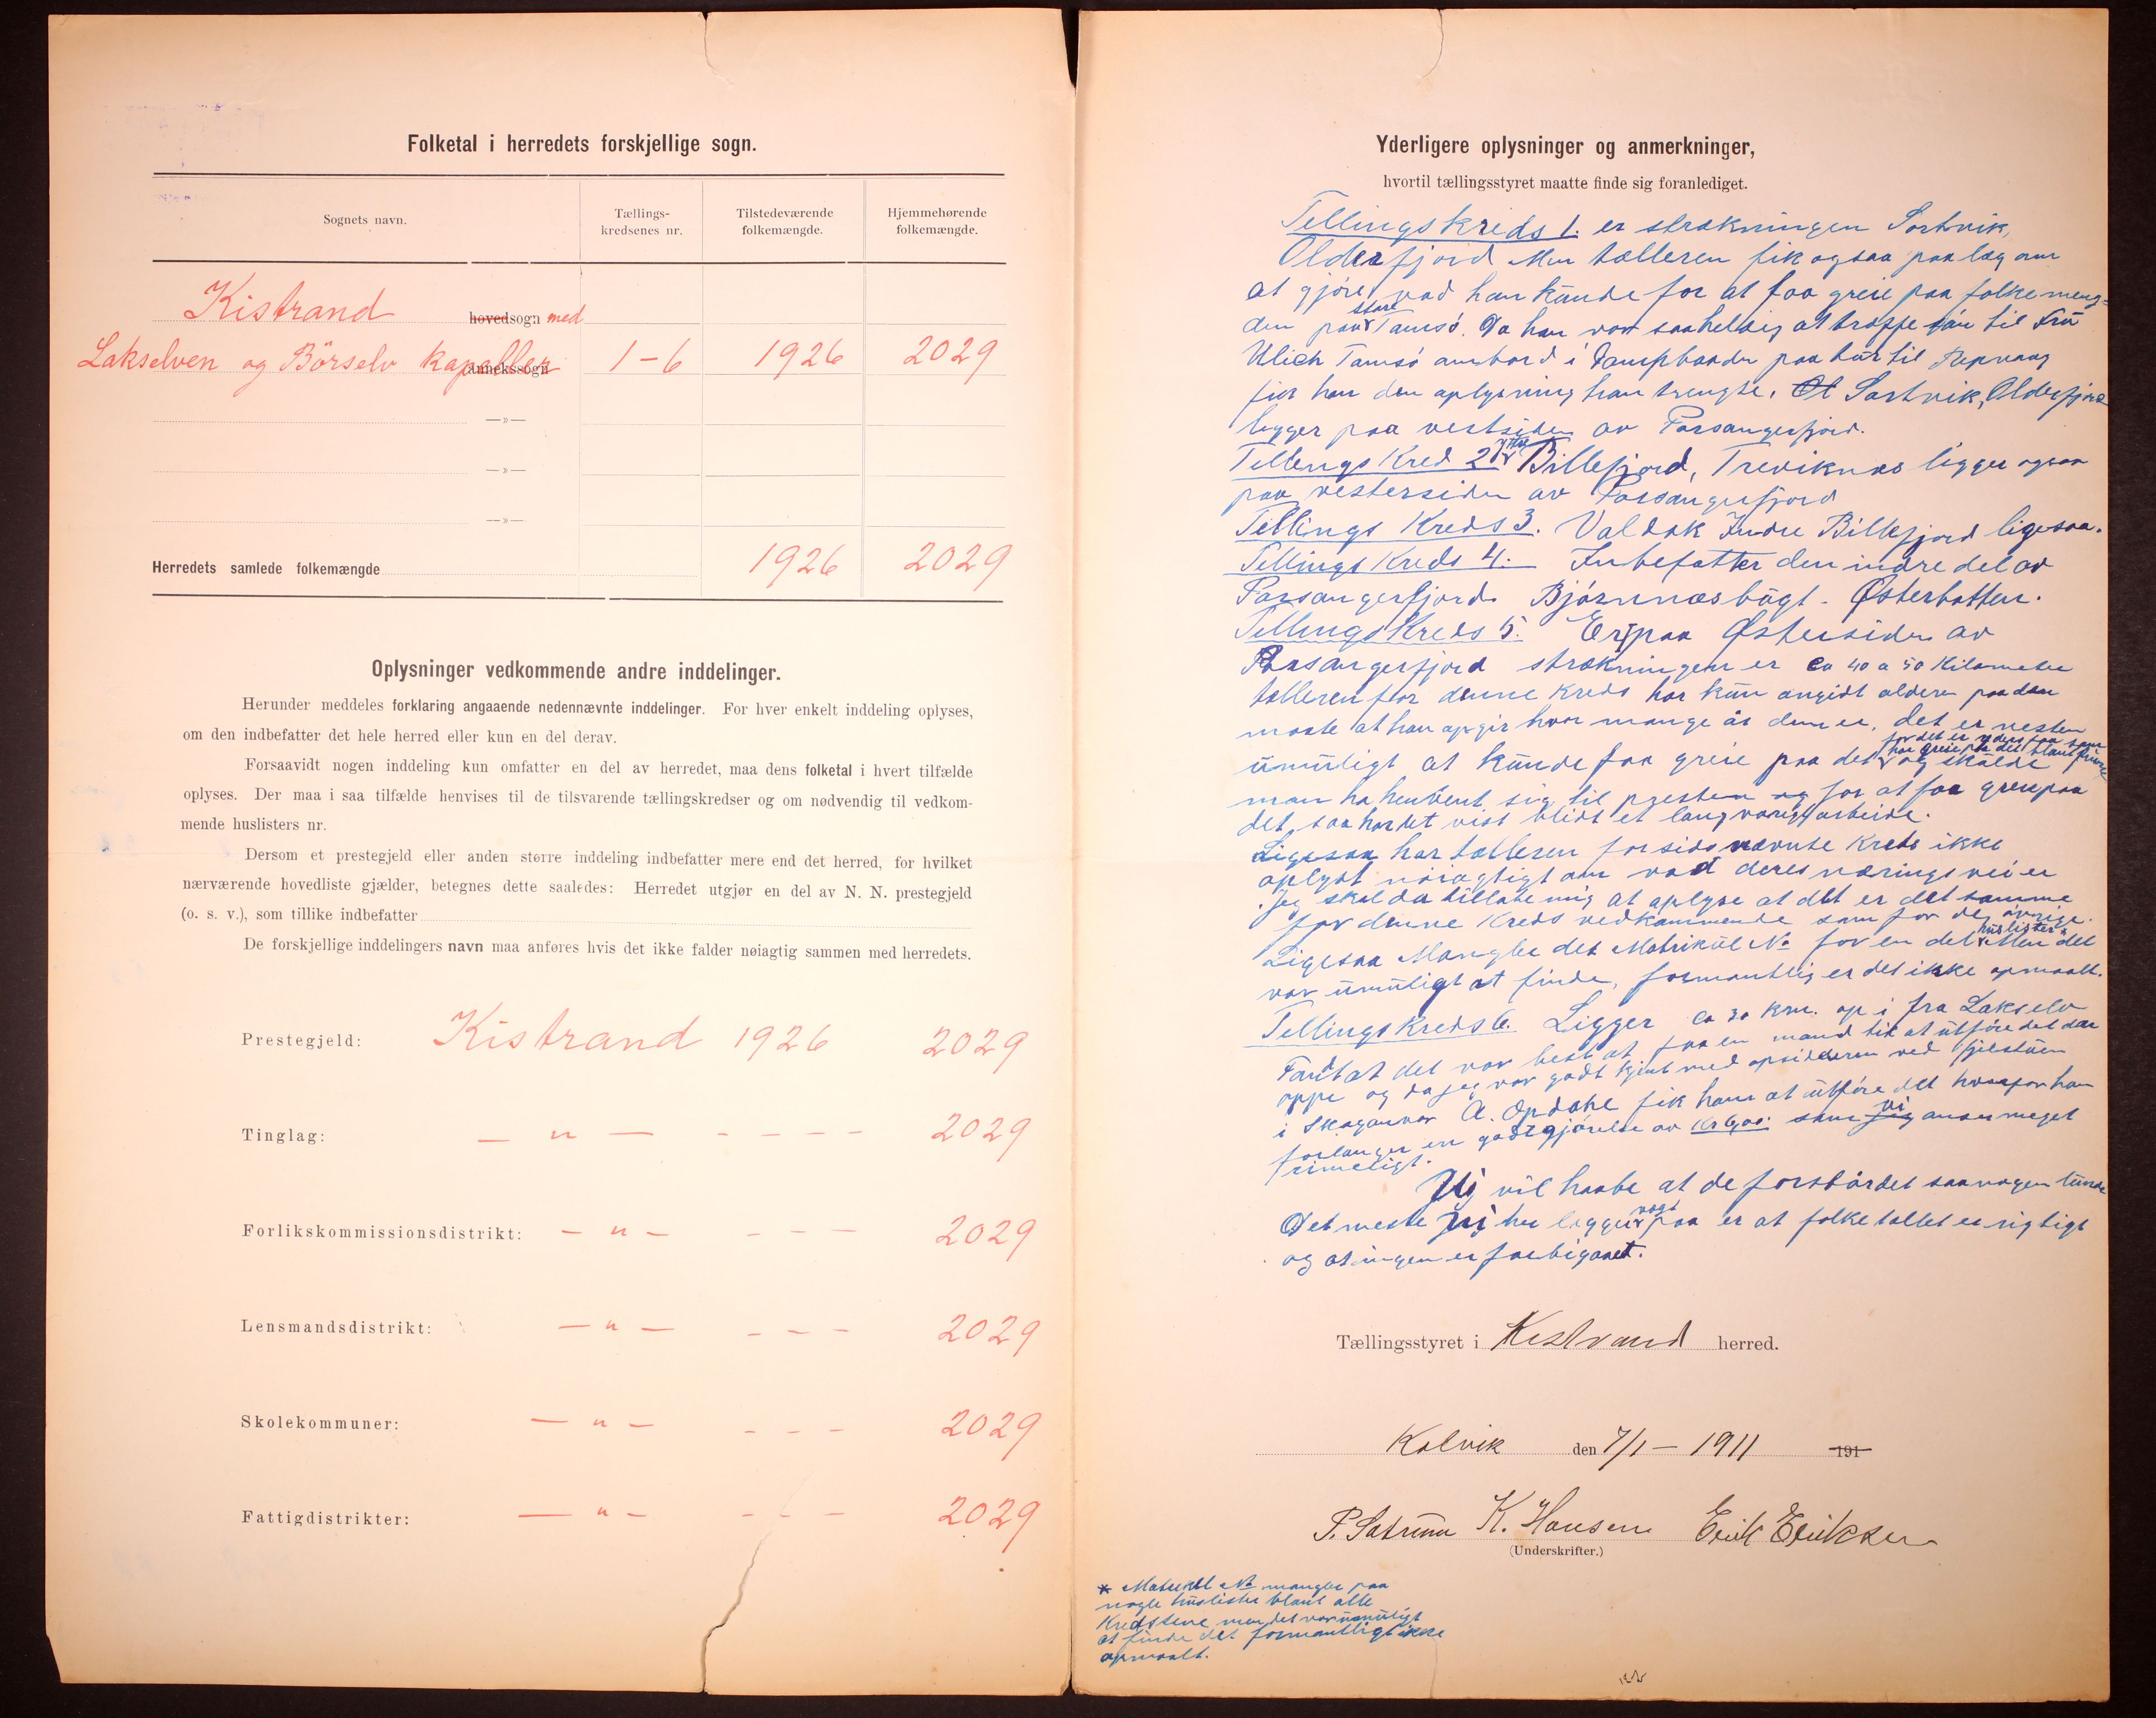 Folketal i herredets forskjellige sogn.
Sognets navn.
Tællings-
kredsenes nr.
Tilstedeværende
folkemængde.
Hjemmehørende
folkemængde.
Kistrand hovedsogn med
Lakselven og Börselv kapeller annekssogn 1-6 1926 2029
—»—
—»—
—»—
Herredets samlede folkemængde 1926 2029
Oplysninger vedkommende andre inddelinger.
Herunder meddeles forklaring angaaende nedennævnte inddelinger. For hver enkelt inddeling oplyses,
om den indbefatter det hele herred eller kun en del derav.
Forsaavidt nogen inddeling kun omfatter en del av herredet, maa dens folketal i hvert tilfælde
oplyses. Der maa i saa tilfælde henvises til de tilsvarende tællingskredser og om nødvendig til vedkom-
mende huslisters nr.
Dersom et prestegjeld eller anden større inddeling indbefatter mere end det herred, for hvilket
nærværende hovedliste gjælder, betegnes dette saaledes: Herredet utgjør en del av N. N. prestegjeld
(o. s. v.), som tillike indbefatter
De forskjellige inddelingers navn maa anføres hvis det ikke falder nøiagtig sammen med herredets.
Prestegjeld: Kistrand 1926 2029
Tinglag: — " — - - - - 2029
Forlikskommissionsdistrikt: — " — - - - 2029
Lensmandsdistrikt: — " — - - - 2029
Skolekommuner: — " — - - - 2029
Fattigdistrikter: — " — - - - 2029
Yderligere oplysninger og anmerkninger,
hvortil tællingsstyret maatte finde sig foranlediget.
Tellingskreds 1. er strækningen Sortvik,
Olderfjord Men tælleren fik ogsaa paalæg om
at gjøre vad han kunde for at faa greie paa folkemeng=
den paa store Tamsö. Da han var saa heldig at træffe fru
Ulich Tamsö ombord i Dampbaaden paa tur til Repvaag
fik han den oplysning han trengte. Sortvik, Olderfjord
ligger paa vestsiden av Porsangerfjord.
Tellings Kred 2 Ytre Billefjord, Treviknes ligger ogsaa
paa vestersiden av Porsangerfjord
Tellings Kreds 3. Valdak Indre Billefjord ligesaa.
Tellings Kreds 4. Inbefatter den indre del av
Porsangerfjord Bjørnnæsbugt - Østerbotten.
Tellings Kreds 5. Er paa Østersiden av
Porsangerfjord strækningen er ca 40 a 50 Kilometer
tælleren for denne Kreds har kun angivt alderen paa den
maate at han opgir hvor mange år dem er, det er nesten
umuligt at kunde faa greie paa det for det er ydersт faa som
har greie paa det blant finne og skulde
man ha henvent sig til presten for at faa greie paa
det, saa har det vist blidt et langvarigt arbeide.
Ligesaa har tælleren for sidsnævnte Kreds ikke
oplyst nöiagtigt om vad deres næringsvei er
Jeg skal da tillate mig at oplyse at det er det samme
for denne Kreds vedkommende som for de øvrige.
Ligesaa Mangler det Matrikül No for en del huslister* Men det
var umuligt at finde, formentlig er det ikke opmaalt.
Tellingskreds 6. Ligger ca 30 km. op i fra Lakselv
Fandt at det var best at faa en mand til at utføre det der
oppe og da jeg var godt kjent med opsideren ved fjelstuen
i Skoganvar A. Opdahl fik ham at utføre det hvorfor han
forlanger en godtgjørelse av Kr 6,00. som vi anser meget
rimeligt.
Vi vil haabe at de forstår det saavagen
Det meste vi her ligger vægt paa er at folketallet er rigtigt
og at ingen er forbigaaet.
Tællingsstyret i Kistrand herred.
Kolvik den 7/1 - 1911 191
P. Satrum K. Hansen Erik Eriksen
(Underskrifter.)
* Matrikül No mangler paa
nogle huslister blant alle
Kredsene men det var umuligt
at finde det formentligt ikke
opmaalt.